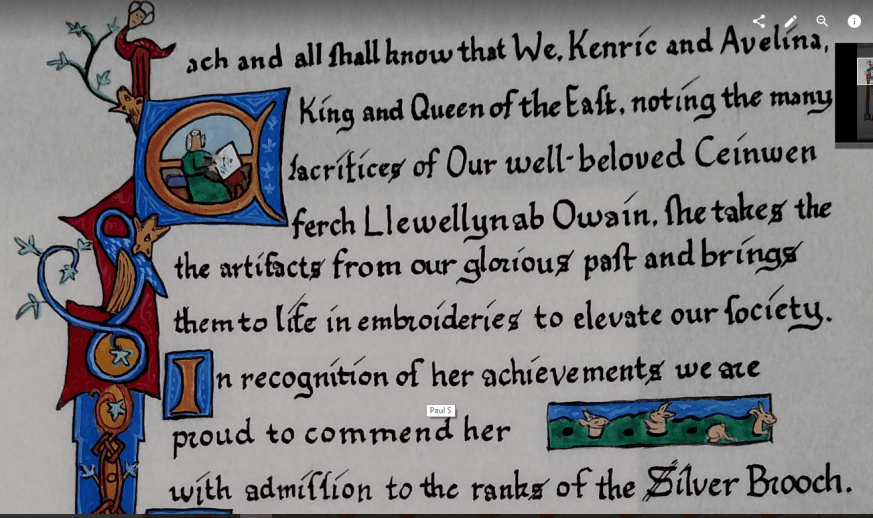 Each and all ſhall know that We, Kenric and Avelina,
King and Queen of the Eaſt, noting the many
ſacrifices of Our well-beloved Ceinwen
ferch Llewellyn ab Owain, ſhe takes the
the artifacts from our glorious paſt and brings
them to life in embroideries to elevate our ſociety.
In recognition of her achievements we are
Paul S
proud to commend her
with admiſſion to the ranks of the Silver Brooch.